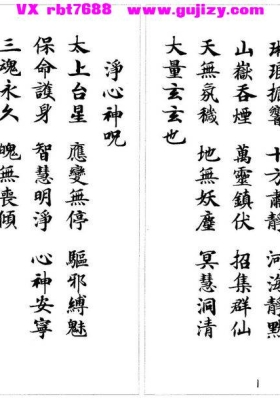 VX rbt7688 www.gujizy.com
琳琅振響 十方肅清 河海靜默
山嶽吞煙 萬靈鎮伏 招集群仙
天無氛穢 地無妖塵 冥慧洞清
大量玄玄也
1
淨心神呪
太上台星 應變無停 驅邪縛魅
保命護身 智慧明淨 心神安寧
三魂永久 魄無喪傾